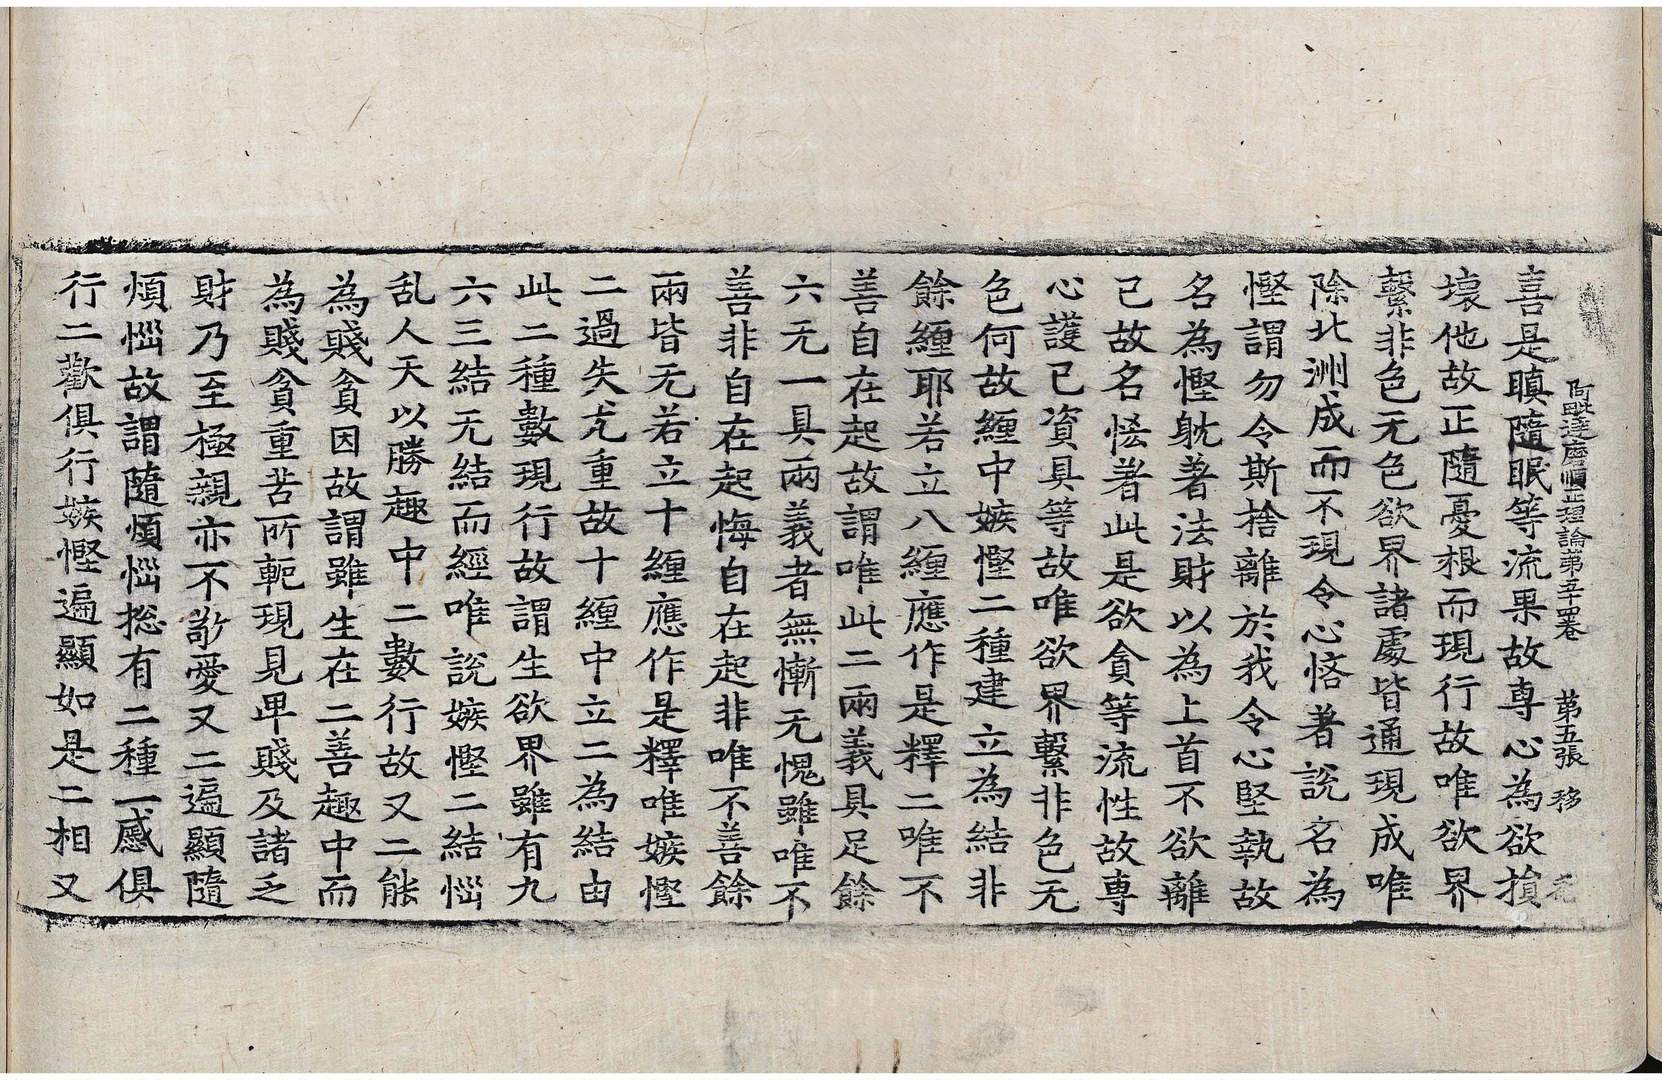 阿毗達磨順正理論第五十四卷 第五張 移
喜是瞋隨眠等流果故專心為欲損
壞他故正隨憂根而現行故唯欲界
繫非色无色欲界諸處皆通現成唯
除北洲成而不現令心悋著說名為
慳謂勿令斯捨離於我令心堅執故
名為慳躭著法財以為上首不欲離
己故名悋著此是欲貪等流性故專
心護己資具等故唯欲界繫非色无
色何故纏中嫉慳二種建立為結非
餘纏耶若立八纏應作是釋二唯不
善自在起故謂唯此二兩義具足餘
六无一具兩義者無慚无愧雖唯不
善非自在起悔自在起非唯不善餘
兩皆无若立十纏應作是釋唯嫉慳
二過失尤重故十纏中立二為結由
此二種數現行故謂生欲界雖有九
六三結无結而經唯說嫉慳二結惱
乱人天以勝趣中二數行故又二能
為賤貧因故謂雖生在二善趣中而
為賤貧重苦所軛現見卑賤及諸乏
財乃至極親亦不敬愛又二遍顯隨
煩惱故謂隨煩惱揔有二種一慼俱
行二歡俱行嫉慳遍顯如是二相又